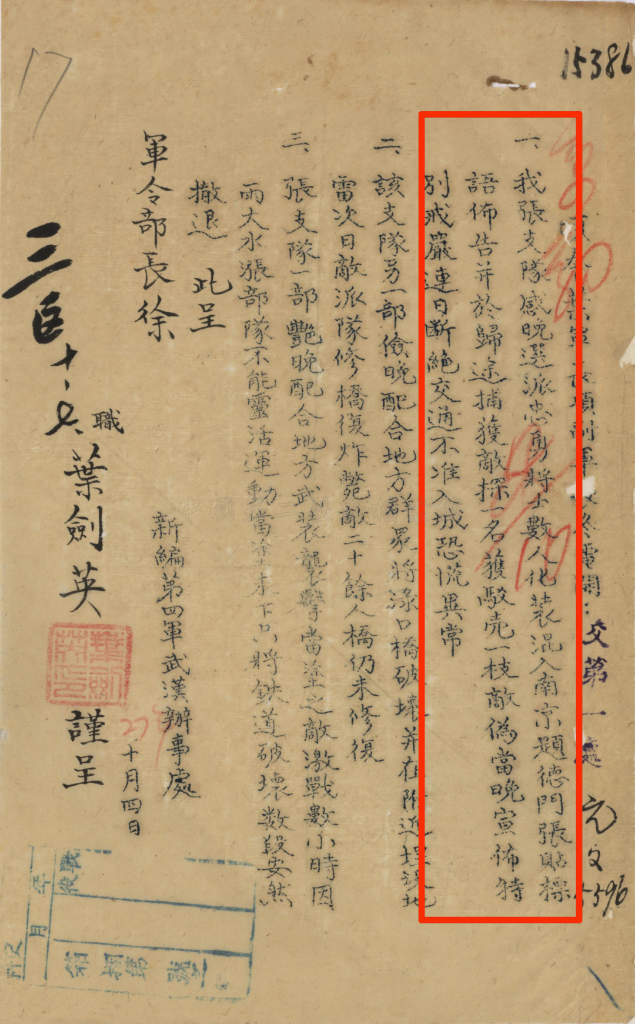 15386
17
頃奉葉軍長項副軍長冬電開：
交第一處
5596
一、我張支隊感晚選派忠勇將士數人化裝混入南京題德門張貼標
語佈告并於歸途捕獲敵探一名獲駁壳一枝敵偽當晚宣佈特
別戒嚴連日斷絕交通不准入城恐慌異常
二、該支隊另一部儉晚配合地方群眾將淥口橋破壞并在附近埋設地
雷次日敵派隊修橋復炸斃敵二十餘人橋仍未修復
三、張支隊一部艷晚配合地方武裝襲擊當塗之敵激戰數小時因
雨大水漲部隊不能靈活運動當塗未下只將鉄道破壞數段安然
撤退 此呈
軍令部長徐
新編第四軍武漢辦事處
職葉劍英 謹呈
十月四日